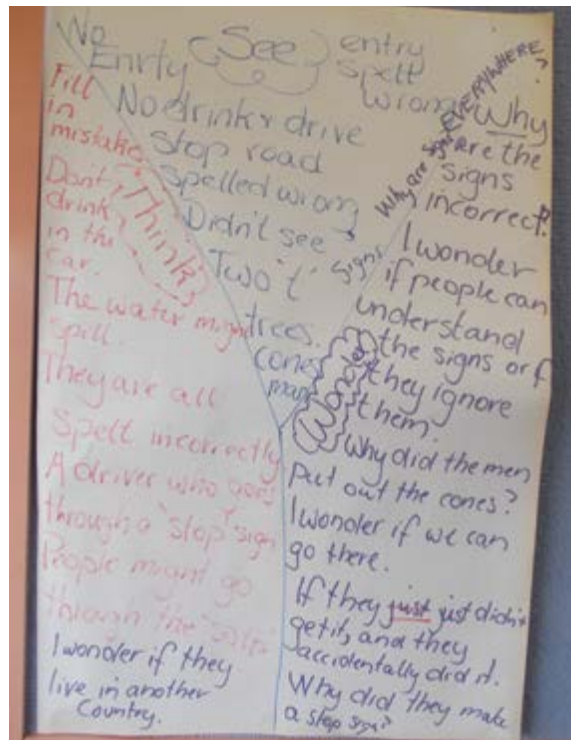 No
Enrty
See
entry
spelt
wrong
No drink x drive
stop road
spelled wrong
Didn't see
Two 't' signs
trees.
cones
man
Think
Fill
in
mistake
Don't
drink
in the
car.
The water might
spill.
They are all
Spelt incorrectly
A driver who goes
through a 'stop' sign
People might go
through the
I wonder if they
live in another
Country.
Wonder
Why are signs EVERYWHERE?
Why
are the
signs
incorrect?
I wonder
if people can
understand
the signs or f
they ignore
them.
Why did the men
put out the cones?
I wonder if we can
go there.
If they just just didn't
get it, and they
accidentally did it.
Why did they make
a stop sign?